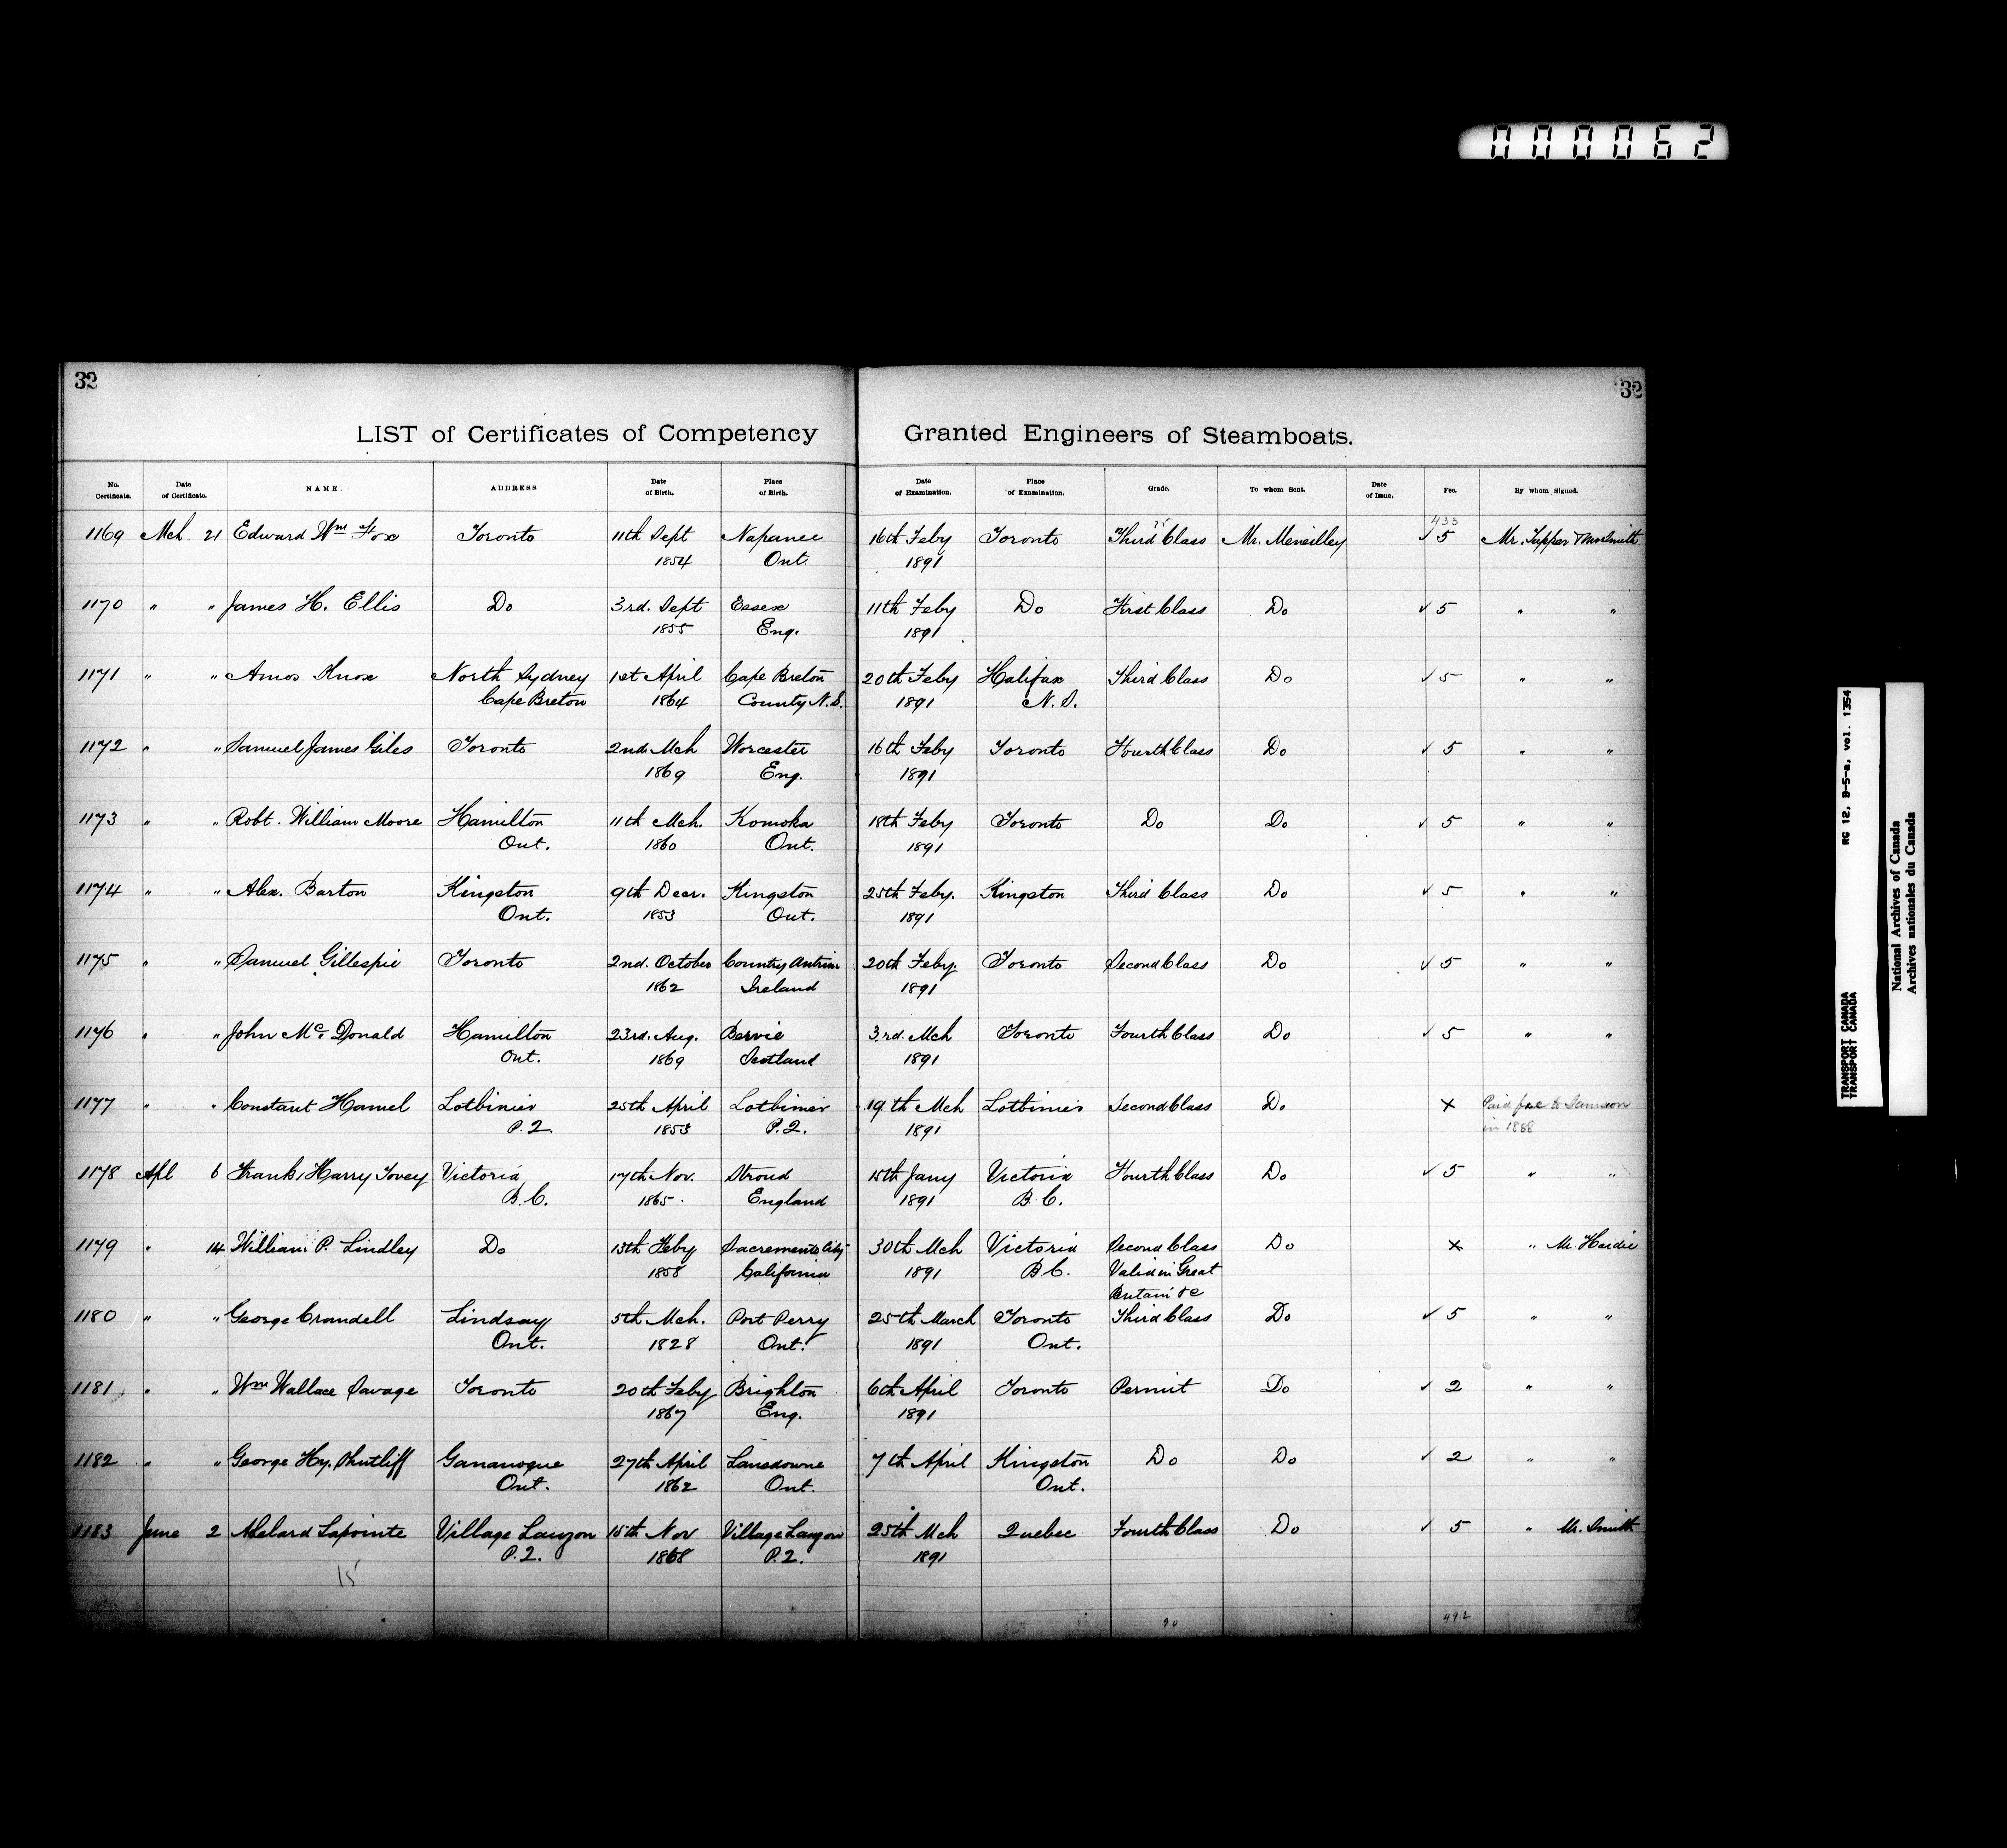 000062
32 32
LIST of Certificates of Competency Granted Engineers of Steamboats.
No. Certificate. Date of Certificate. NAME. ADDRESS Date of Birth. Place of Birth. Date of Examination. Place of Examination. Grade. To whom Sent. Date of Issue. Fee. By whom Signed.
433
1169 Mch 21 Edward Wm Fox Toronto 11th Sept Napanee 16th Feby Toronto Third Class Mr. Meneilley ✓ 5 Mr. Tupper Mr Smith
1854 Ont. 1891
1170 " " James H. Ellis Do 3rd. Sept Essex 11th Feby Do First Class Do ✓ 5 " "
1855 Eng. 1891
1171 " " Amos Knox North Sydney 1st April Cape Breton 20th Feby Halifax Third Class Do ✓ 5 " "
Cape Breton 1864 County N.S. 1891 N.S.
1172 " " Samuel James Giles Toronto 2nd. Mch Worcester 16th Feby Toronto Fourth Class Do ✓ 5 " "
1869 Eng. 1891
1173 " " Robt. William Moore Hamilton 11th Mch. Komoka 18th Feby Toronto Do Do ✓ 5 " "
Ont. 1860 Ont. 1891
1174 " " Alex. Barton Kingston 9th Decr. Kingston 25th Feby. Kingston Third Class Do ✓ 5 " "
Ont. 1853 Ont. 1891
1175 " " Samuel Gillespie Toronto 2nd. October Country Antrim 20th Feby. Toronto Second Class Do ✓ 5 " "
1862 Ireland 1891
1176 " " John Mc Donald Hamilton 23rd. Aug. Bervie 3rd. Mch Toronto Fourth Class Do ✓ 5 " "
Ont. 1869 Scotland 1891
1177 " " Constant Hamel Lotbinier 25th April Lotbinier 19th Mch Lotbinier Second Class Do × Paid fee to Samson
P.Q. 1853 P.Q. 1891 in 1888
1178 Apl 6 Frank Harry Tovey Victoria 17th Nov. Stroud 15th Jany Victoria Fourth Class Do ✓ 5 " "
B.C. 1865. England 1891 B.C.
1179 " 14 William P. Lindley Do 13th Feby Sacremento City 30th Mch Victoria Second Class Do × " Mr. Hardie
1858 California 1891 B.C. Valid in Great
Britain &c
1180 " " George Crandell Lindsay 5th Mch. Port Perry 25th March Toronto Third Class Do ✓ 5 " "
Ont. 1828 Ont. 1891 Ont.
1181 " " Wm Wallace Savage Toronto 20th Feby Brighton 6th April Toronto Permit Do ✓ 2 " "
1867 Eng. 1891
1182 " " George Hy. Shutliff Gananoque 27th April Lansdowne 7th April Kingston Do Do ✓ 2 " "
Ont. 1862 Ont. Ont.
1183 June 2 Abelard Lapointe Village Lauzon 15th Nov Village Lauzon 25th Mch Quebec Fourth Class Do ✓ 5 " Mr. Smith
P.Q. 1868 P.Q. 1891
15
492
TRANSPORT CANADA RG 12, B-5-a, vol. 1354
TRANSPORT CANADA
National Archives of Canada
Archives nationales du Canada